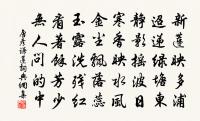 新蓮映多浦
迢遞綠塘東
靜影搖波日
寒香映水風
金塵飄落蕊
玉露洗殘紅
看著餘芳少
無人問的中
唐彥謙詩蓮詞典網書